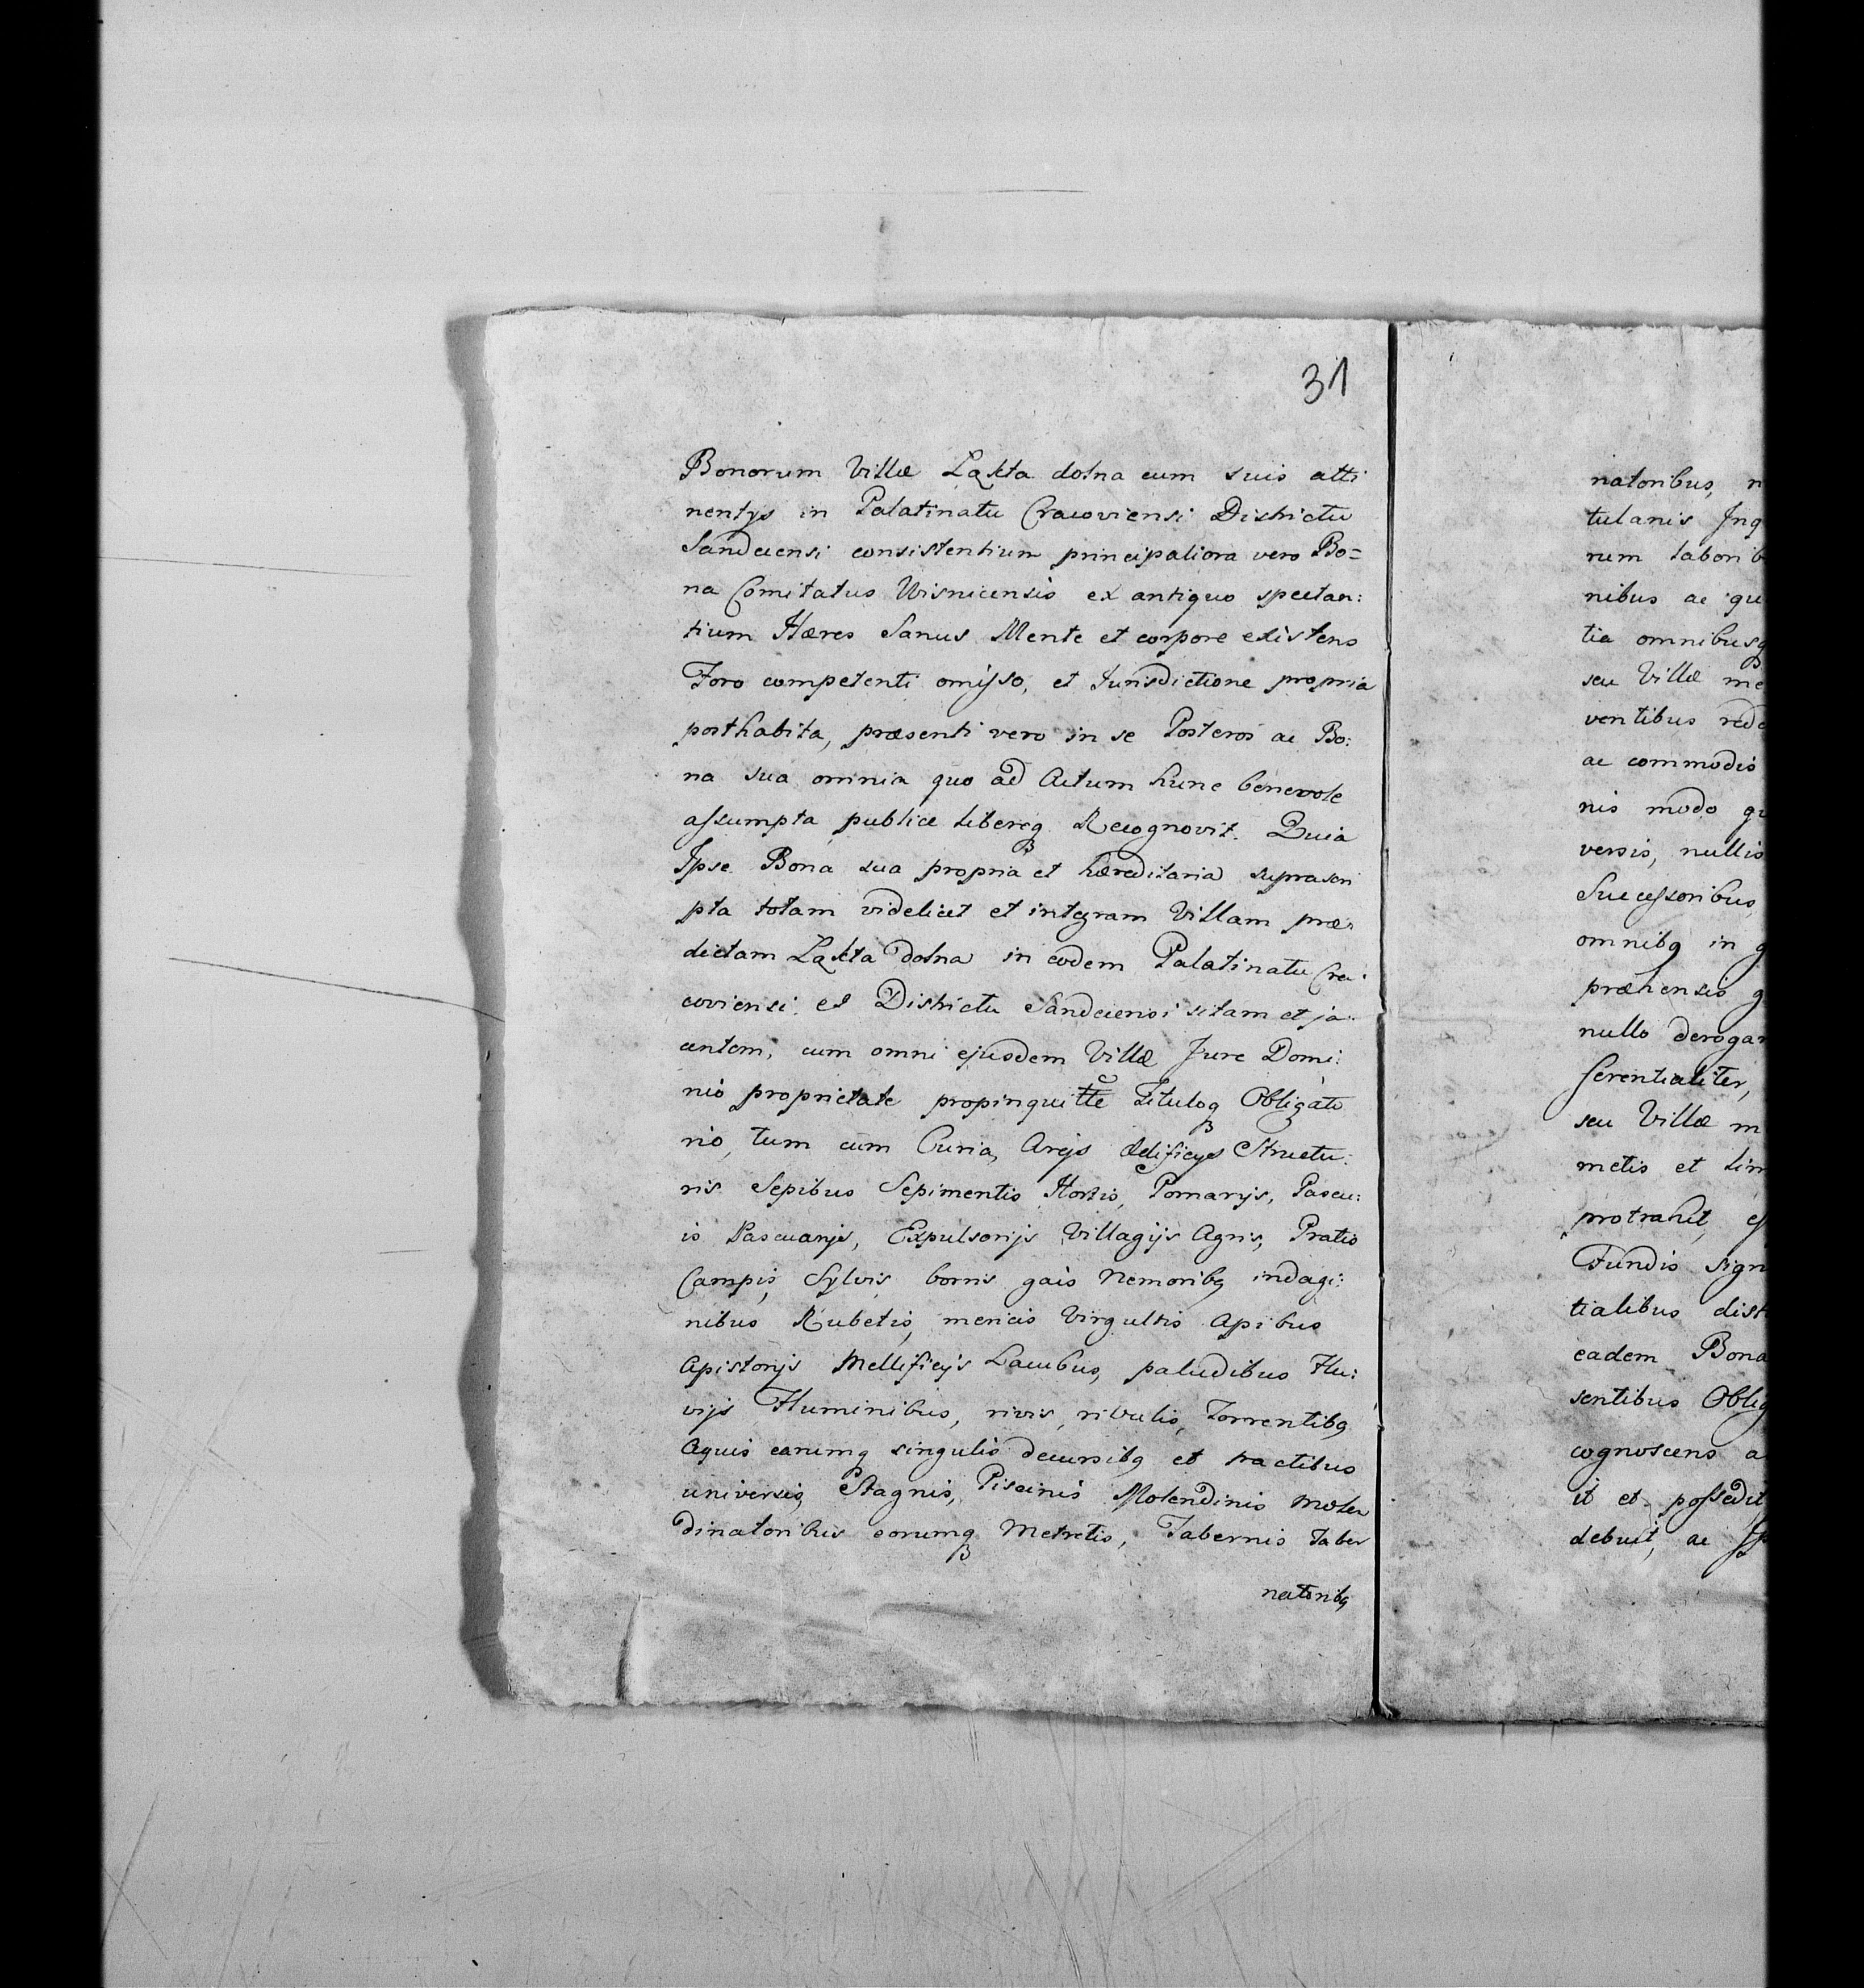 31
Bonorum Villæ Łąkta dolna cum suis atti
nentys in Palatinatu Cracoviensi Districtu
Sandecensi consistentium principaliora vero Bo=
na Comitatus Wisnicensis ex antiquo spectan:
tium Hæres Sanus Mente et corpore existens
Foro competenti omisso, et Jurisdictione propria
posthabita, præsenti vero in se Posteros ac Bo:
na sua omnia quo ad Actum hunc benevole
assumpta publice libereq Recognovit. Quia
Ipse Bona sua propria et hæreditaria suprascri
pta totam videlicet et integram Villam præ:
dictam Łąkta dolna in eodem Palatinatu Cra:
coviensi et Districtu Sandecensi sitam et ja:
centem, cum omni ejusdem Villæ Jure Domi:
nio proprietate propinquitte Tituloq Obligato
rio, tum cum Curia, Areis Ædificys Structu:
ris Sepibus Sepimentis Hortis, Pomarijs, Pascu:
is Pascuarijs, Expulsorijs Villagijs Agris, Pratis
Campis, Sylvis, borris gais Nemoribq indagi:
nibus Rubetis, mericis Virgultis Apibus
Apistorijs Mellificijs Lacubus, paludibus Flu:
vijs Fluminibus, rivis, rivulis, Torrentibq
Aquis earumq singulis decursibq et tractibus
universis, Stagnis, Piscinis Molendinis Molen
dinatoribus eorumq Metretis, Tabernis Taber
natoribq
natoribus, n
tulanis Inq
rum laborib
nibus ac qu
tia omnibusq
seu Villæ me
ventibus redd
ac commodis
nis modo qu
versis, nullis
Successoribus,
omnibq in g
præhensis g
nullo derogan
ferentialiter,
seu Villæ m
metis et lim
protrahit, ef
Fundis sign
tialibus dist
eadem Bona
sentibus Oblig
cognoscens a
it et possedit
debuit, ac Ip